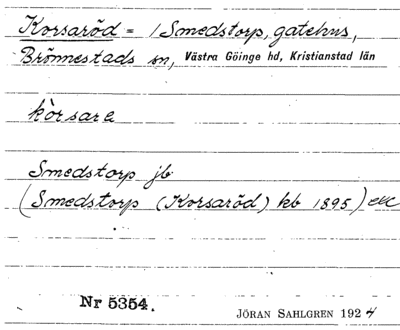 Korsaröd = / Smedstorp, gatehus,
Brönnestads sn, Västra Göinge hd, Kristianstad län
kòrsare
Smedstorp jb
(Smedstorp (Korsaröd) kb 1895) etc
Nr 5354.
JÖRAN SAHLGREN 1924